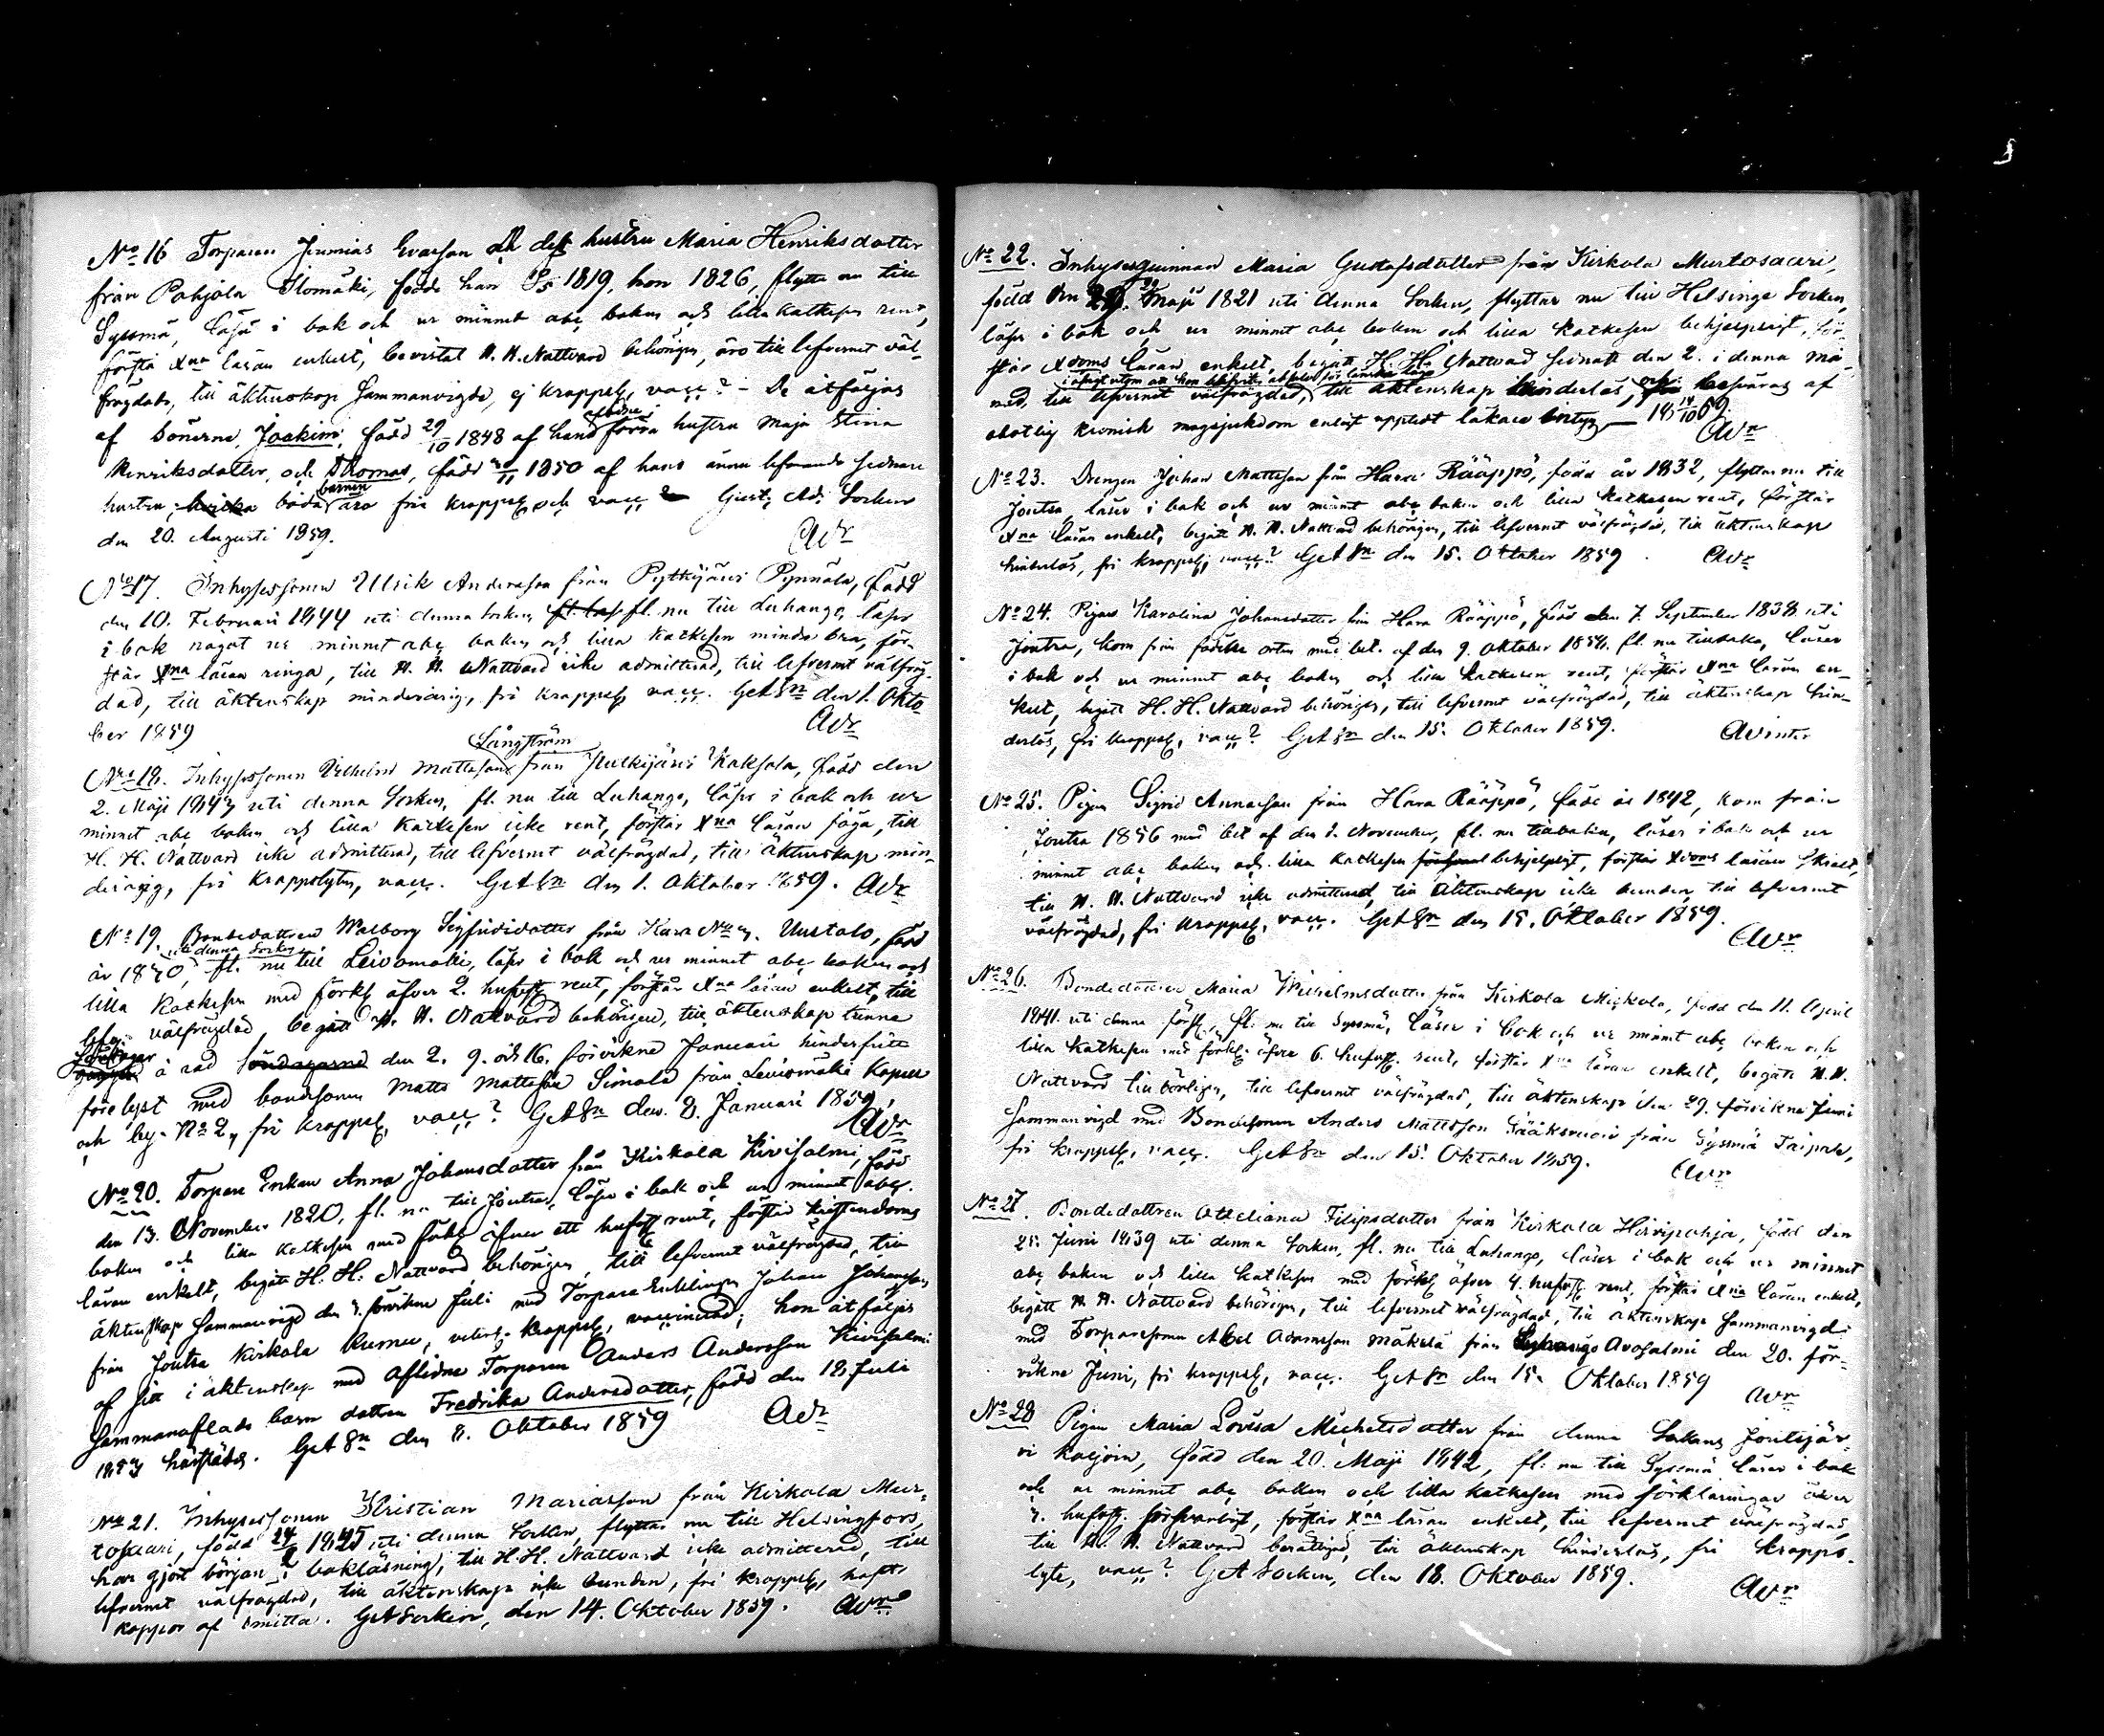 No 16 Torparen Jeremias Evasson och dess hustru Maria Henriksdotter
från Pohjola Ilomäki, födde han 1819, hon 1826, flytta nu till
Sysmä, läsa i bok och ur minnet abc boken och lilla katkesen rent,
förstå Xna läran enkelt, bevistat H. H. Nattvard behörigen, äro till lefvernet väl-
frägdade, till äktenskap sammanvigde, ej kroppsl, vacc? – De åtföljas
af sönerne, Joakim, född 29/10 1848 af hans förra hustru Maja Stina
Henriksdotter, och Thomas, född 1850 af hans ännu lefvande sednare
hustru, båda barnen äro fria kroppsl och vacc Gust. Ad. Socken
den 20. Augusti 1859. AWr
No 17. Inhysessonen Ulrik Andersson från Pytkijärvi Pynnälä, född
den 10. Februari 1844 uti denna socken, fl. nu till Luhango, läser
i bok något ur minnet abc boken och lilla katkesen mindre bra, för-
står Xna läran ringa, till H. H. Nattvard icke admitterad, till lefvernet välfräg-
dad, till äktenskap minderårig, fri kroppsl vacc. GetASn den 1. Okto-
ber 1859 AWr
Långström
No 18. Inhysessonen Vilhelm Mattsson från Putkijärvi Kaksola, född den
2. Maji 1847 uti denna Socken, fl. nu till Luhango, läser i bok och ur
minnet abc boken och lilla katkesen icke rent, förstår Xna läran föga, till
H. H. Nattvard icke admitterad, till lefvernet välfrägdad, till äktenskap min-
derårig, fri kroppslyten, vacc. GetASn den 1. Oktober 1859. AWr
No 19. Bondedottren Walborg Sigfridsdotter från Hara No Uustalo, född
uti denna Socken
år 1840, fl. nu till Leivomäki, läser i bok och ur minnet abc boken och
lilla katkesen med förkl öfver 2. hufvst rent, förstår Xna läran enkelt, till
lefv. välfrägdad, begått H. H. Nattvard behörigen, till äktenskap trenne
å rad söndagarne den 2. 9. och 16. förvikne Januari hinderfritt
förelyst med bondsonen Matts Mattsson Simola från Leivomäki kapell
och by No 2, fri kroppsl, vacc? GetASn den 8. Januari 1859. AWr
No 20. Torpare Enkan Anna Johansdotter från Kirkola Kirvisalmi, född
den 13. November 1820, fl. nu till Joutsa, läser i bok och ur minnet abc.
boken och lilla katkesen med förkl öfver ett hufvst rent, förstår kristendoms
läran enkelt, begått H. H. Nattvard behörigen, till lefvernet välfrägdad, till
äktenskap sammanvigd den 3. förvikne Juli med Torpare Enklingen Johan Johansson
från Joutsa Kirkola Rumu, kroppsl, vaccinerad; hon åtföljes
af sitt i äktenskap med aflidne Torparen Anders Andersson Kirvisalmi
sammanaflade barn dottren Fredrika Andersdotter, född den 12. Juli
1857 härstädes. GetASn den 8. Oktober 1859 AWr
No 21. Inhysessonen Kristian Mariasson från Kirkola Mur-
tosaari, född 24/2 1845 uti denna Socken, flyttar nu till Helsingfors,
har gjort början i bokläsning, till H. H. Nattvard icke admitterad, till
lefvernet välfrägdad, till äktenskap icke bunden, fri kroppsl, haft
koppor af smitta. GetASocken, den 14. Oktober 1859. AWr
No 22. Inhysesqvinnan Maria Gustafsdotter från Kirkola Murtosaari,
född den Maji 1821 uti denna Socken, flyttar nu till Helsinge Socken,
läser i bok och ur minnet abc boken och lilla katkesen behjelpligt, för-
står Xdoms läran enkelt, begått H. H. Nattvard sednast den 2. i denna må-
nad, till lefvernet välfrägdad, till äktenskap hinderlös, besväras af
obotlig kronisk magsjukdom enligt uppvist läkare betyg 14/10 59. AWr
No 23. Drengen Johan Mattsson från Hara Rääppö, född år 1832, flyttar nu till
Joutsa, läser i bok och ur minnet abc boken och lilla katkesen rent, förstår
Xna läran enkelt, begått H. H. Nattvard behörigen, till lefvernet välfrägdad, till äktenskap
hinderlös, fri kroppsl, vacc? GetASn den 15. Oktober 1859. AWr
No 24. Pigan Karolina Johansdotter från Hara Rääppö, född den 7. September 1838 uti
Joutsa, kom från födelse orten med bet. af den 9. Oktober 1858. fl. nu tillbaka, läser
i bok och ur minnet abc boken och lilla katkesen rent, förstår Xna läran en-
kelt, begått H. H. Nattvard behörigen, till lefvernet välfrägdad, till äktenskap hin-
derlös, fri kroppsl, vacc? GetASn den 15. Oktober 1859. AWinter
No 25. Pigan Sigrid Annasson från Hara Rääppö, född år 1842, kom från
Joutsa 1856 med bet af den 2. November, fl. nu tillbaka, läser i bok och ur
minnet abc boken och lilla katkesen behjelpligt, förstår Xdoms läran
till H. H. Nattvard icke admitterad, till äktenskap icke bunden, till lefvernet
välfrägdad, fri kroppsl, vacc. GetASn den 15. Oktober 1859.
AWr
No 26. Bondedottren Maria Wilhelmsdotter från Kirkola Mickola, född den 11. April
1841. uti denna förs., fl. nu till Sysmä, läser i bok och ur minnet abc boken och
lilla katkesen med förkl. öfver 6. hufvst. rent, förstår Xna läran enkelt, begått H. H.
Nattvard tillbörligen, till lefvernet välfrägdad, till äktenskap den 29. förvikne Juni
sammanvigd med Bondesonen Anders Mattsson Sääksvuori från Sysmä Taipale,
fri kroppsl, vacc. GetASn den 15. Oktober 1859. AWr
No 27. Bondedottren Otteliana Filipsdotter från Kirkola Hirvipohja, född den
25. Juni 1839 uti denna Socken, fl. nu till Luhango, läser i bok och ur minnet
abc boken och lilla katkesen med förkl öfver 4. hufvst. rent, förstår Xna läran enkelt,
begått H. H. Nattvard behörigen, till lefvernet välfrägdad, till äktenskap sammanvigd
med Torparesonen Abel Adamsson Mäkelä från Luhango Avosalmi den 20. för-
vikne Juni, fri kroppsl, vacc. GetASn den 15. Oktober 1859 AWr
No 28 Pigan Maria Lovisa Michelsdotter från denna Sockens Joutsjär-
vi Kaljoin, född den 20. Maji 1842, fl. nu till Sysmä läser i bok
och ur minnet abc boken och lilla katkesen med förklaringar öfver
3. hufvst. försvarligt, förstår Xna läran enkelt, till lefvernet välfrägdad,
till H. H. Nattvard berättigad, till äktenskap hinderlös, fri kropps-
lyte, vacc? GetASocken, den 18. Oktober 1859.
AWr